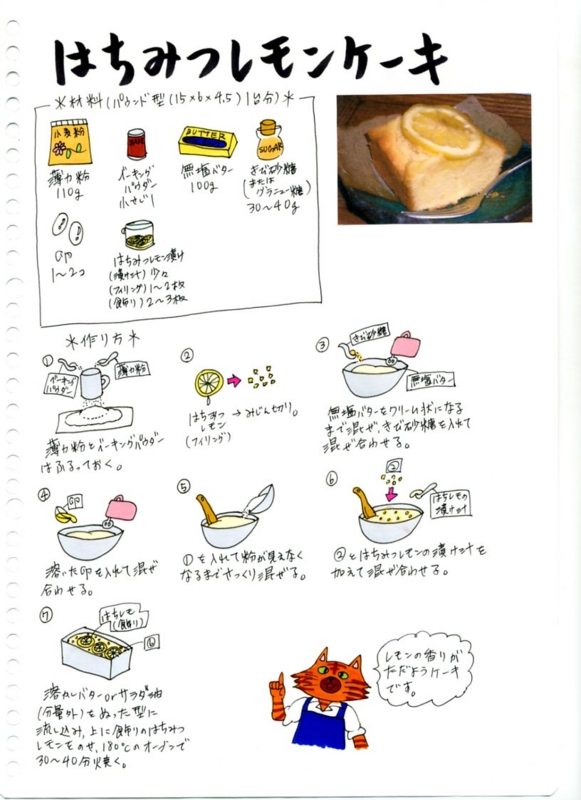 はちみつレモンケーキ
＊材料(パウンド型(15×6×4.5)1台分)＊
小麦粉
薄力粉
110g
ベーキング
パウダー
小さじ1
BUTTER
無塩バター
100g
SUGAR
きび砂糖
(または
グラニュー糖)
30〜40g
卵
1〜2コ
はちみつレモン漬け
(漬け汁)少々
(フィリング)1〜2枚
(飾り)2〜3枚
＊作り方＊
①
ベーキング
パウダー
薄力粉
薄力粉とベーキングパウダー
はふるっておく。
②
はちみつ
レモン
(フィリング)
→みじん切り。
③
きび砂糖
無塩バター
無塩バターをクリーム状になる
まで混ぜ、きび砂糖を入れて
混ぜ合わせる。
④
卵
溶いた卵を入れて混ぜ
合わせる。
⑤
①を入れて粉が見えなく
なるまでさっくり混ぜる。
⑥
②
はちレモの
漬け汁
②とはちみつレモンの漬け汁を
加えて混ぜ合わせる。
⑦
はちレモ
(飾り)
⑥
溶かしバターorサラダ油
(分量外)をぬった型に
流し込み、上に飾りのはちみつ
レモンをのせ、180℃のオーブンで
30〜40分焼く。
レモンの香りが
ただようケーキ
です。